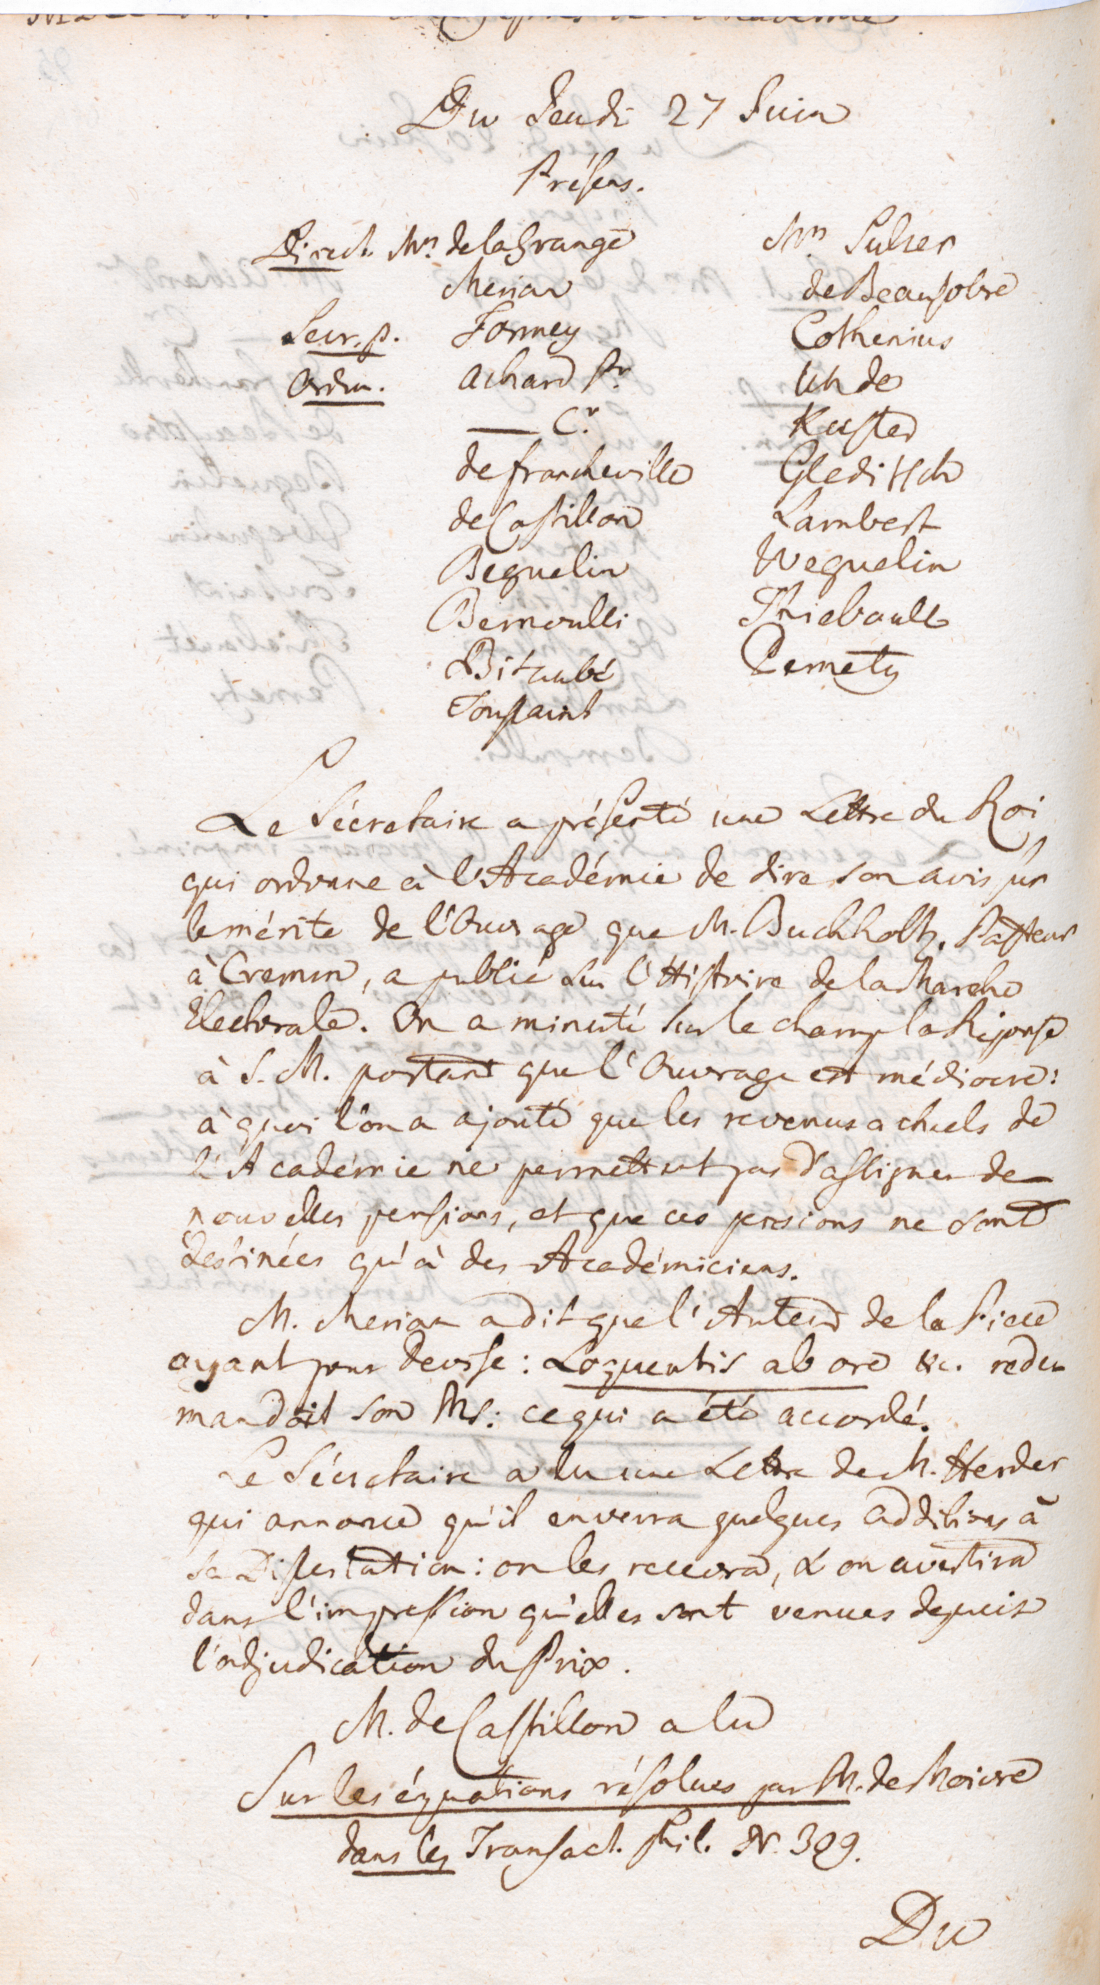 Du Jeudi 27 Juin
Présens.
Direct. Mrs. de la Grange
Merian
Secr. p. Formey
Ordin. Achard Pr
—— Cr.
de Francheville
de Castillon
Beguelin
Bernoulli
Bitaubé
Toussaint
Mrs Sulzer
de Beausobre
Cothenius
Uhden
Kuster
Gleditsch
Lambert
Weguelin
Thiebault
Pernety
Le Sécretaire a présenté une Lettre du Roi
qui ordonne à l'Académie de dire son avis sur
le mérite de l'Ouvrage que M. Buchholtz, Pasteur
à Cremm, a publié sur l'Histoire de la Marche
Electorale. On a minuté sur le champ la Réponse
à S. M. portant que l'Ouvrage est médiocre:
à quoi l'on a ajouté que les revenus actuels de
l'Académie ne permettent pas d'assigner de
nouvelles pensions, et que ces pensions ne sont
destinées qu'à des Académiciens.
M. Merian a dit que l'Auteur de la Piece
ayant pour devise: Loquentis ab ore &c. rede
mandoit son Ms: ce qui a été accordé.
Le Sécretaire a lu une Lettre de M. Herder
qui annonce qu'il enverra quelques additions à
sa Dissertation: on les recevra, & on avertira
dans l'impression qu'elles sont venues depuis
l'adjudication du Prix.
M. de Castillon a lu
Sur les équations résolues par M. de Moivre
dans les Transact. Phil. N. 309.
Du